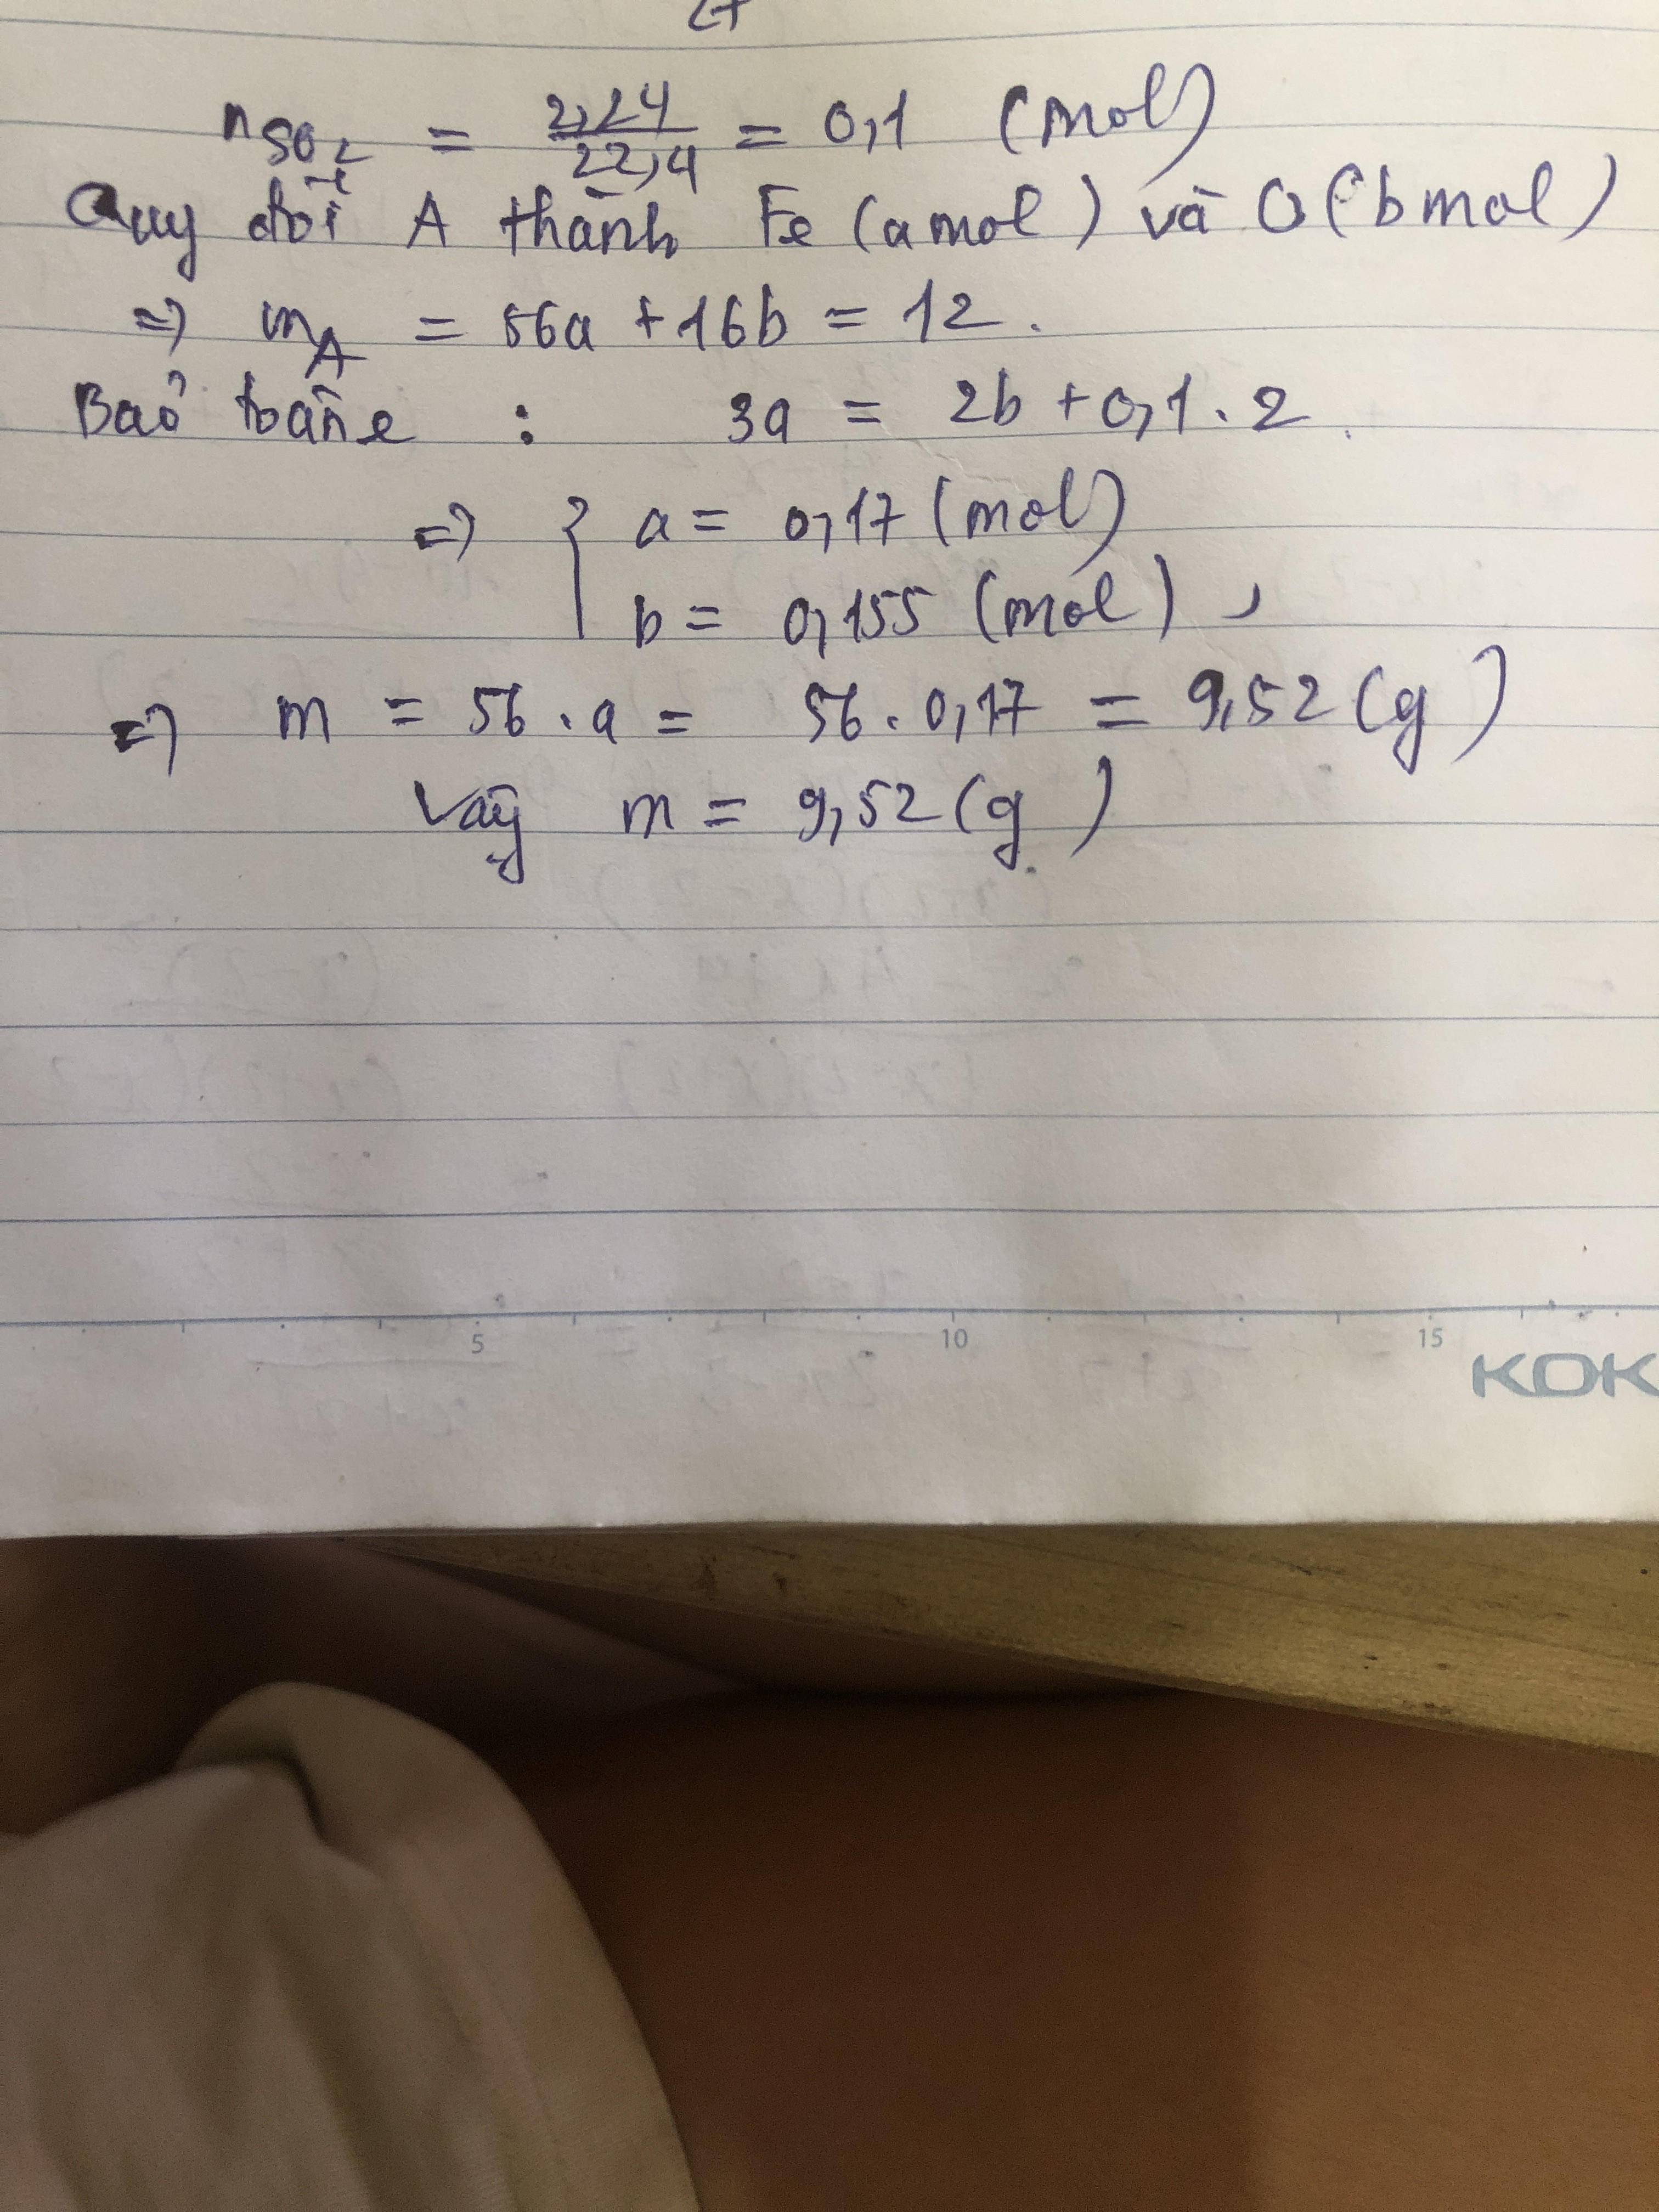 nSO2 = 2,24/22,4 = 0,1 (mol)
Quy đổi A thành Fe (a mol) và O (b mol)
=> mA = 56a + 16b = 12.
Bảo toàn e : 3a = 2b + 0,1.2.
=> { a = 0,17 (mol)
b = 0,155 (mol)
=> m = 56.a = 56.0,17 = 9,52 (g)
Vậy m = 9,52 (g)
5 10 15
KOK